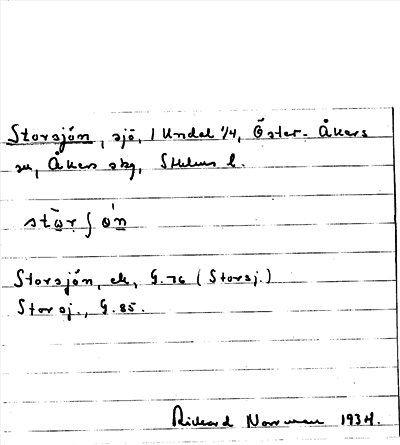 Storsjön, sjö, 1 Undal 1/4, Öster-Åkers
sn, Åkers skg, Sthlms l.
Storsjön, ek, G. 76 (Storsj.)
Storsj., G. 85.
Rickard Norrman 1934.